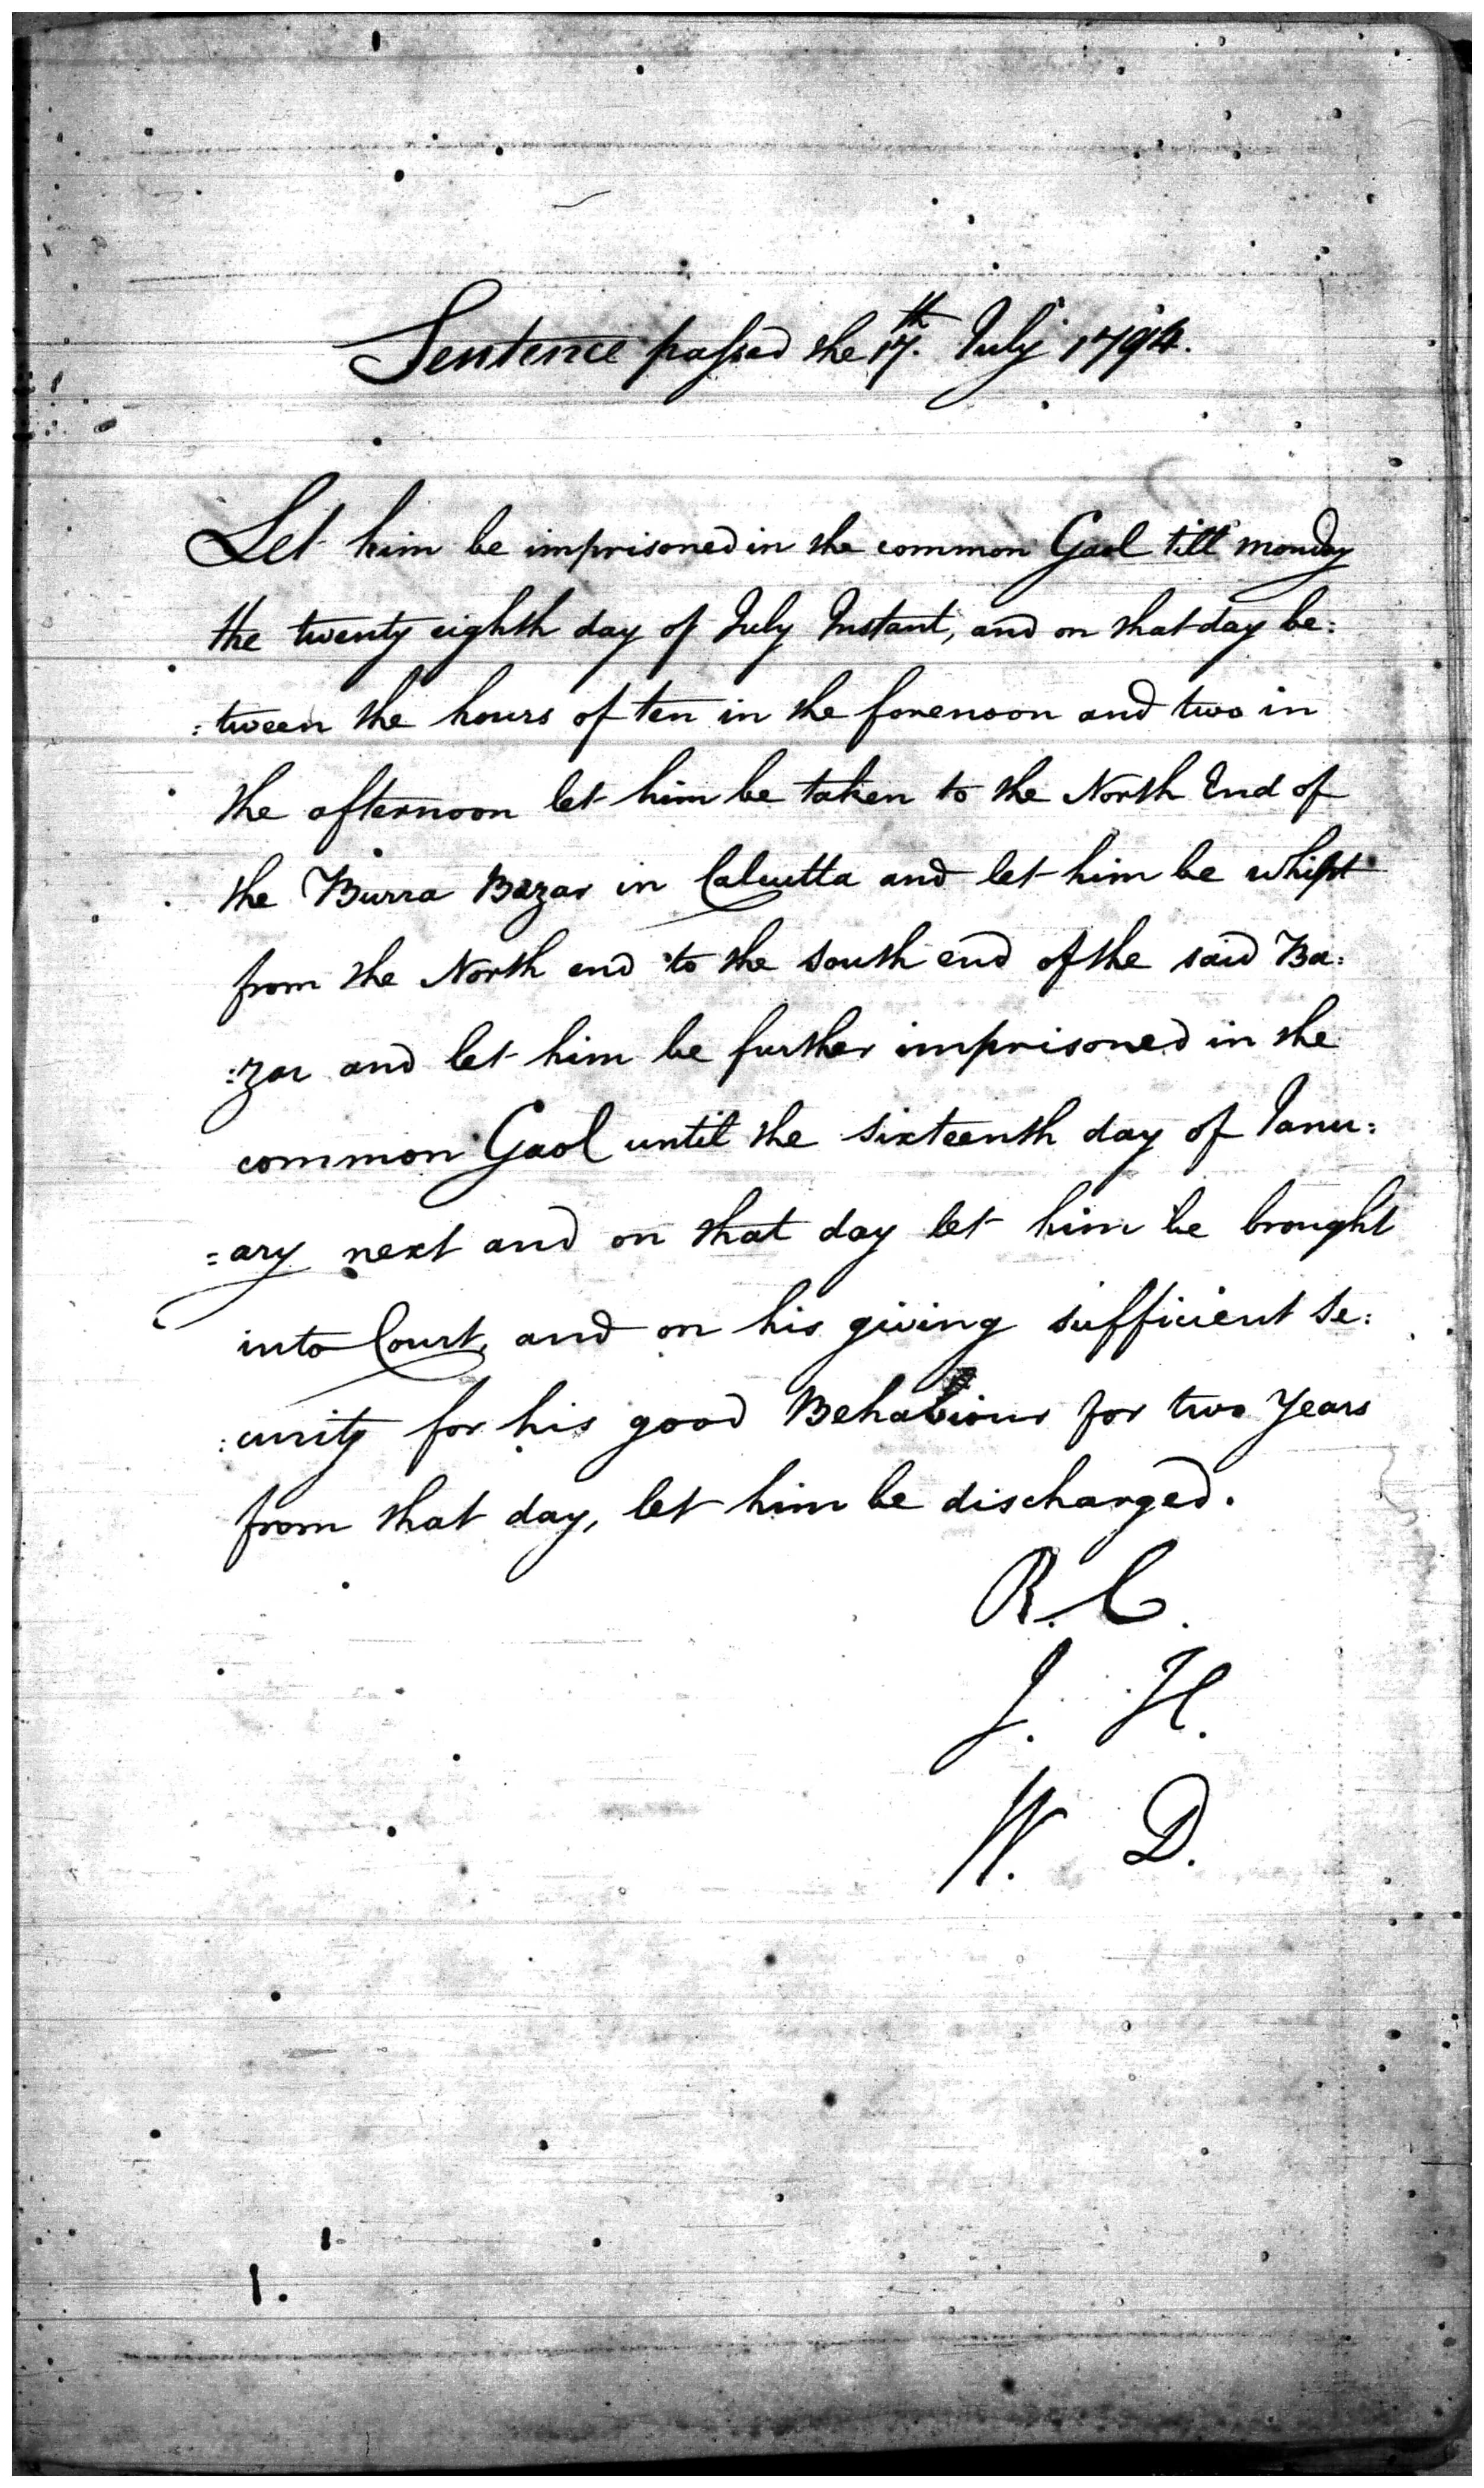 Sentence passed the 17th. July 1794.
Let him be imprisoned in the common Gaol till monday
the twenty eighth day of July Instant, and on that day be:
:tween the hours of ten in the forenoon and two in
the afternoon let him be taken to the North End of
the Burra Bazar in Calcutta and let him be whipt
from the North end to the South end of the said Ba:
:zar and let him be further imprisoned in the
common Gaol until the sixteenth day of Janu:
=ary next and on that day let him be brought
into Court, and on his giving sufficient Se:
:curity for his good Behaviour for two Years
from that day, let him be discharged.
R. C.
J. H.
W. D.